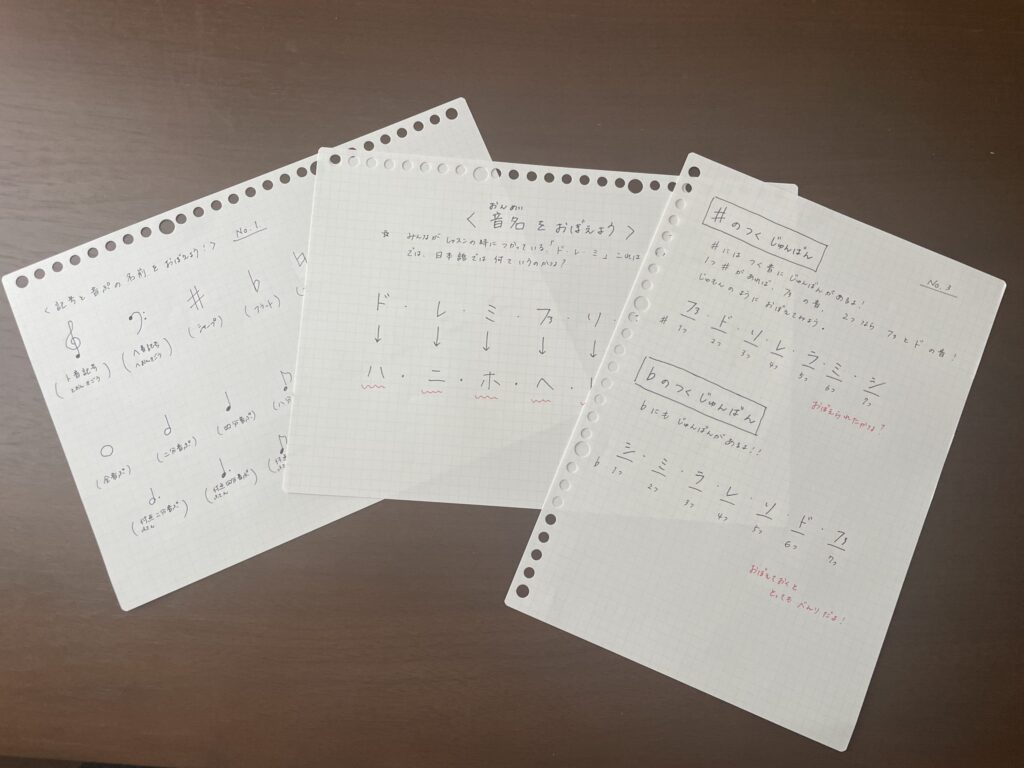 <記号と音ぷの名前をおぼえよう!> No.1
(ト音記号 とおんきごう) (ヘ音記号 へおんきごう) (シャープ) (フラット)
(全音ぷ) (二分音ぷ) (四分音ぷ) (八分
(付点二分音ぷ ふてん) (付点四分音ぷ ふてん)
おんめい
<音名をおぼえよう>
☆ みんながレッスンの時につかっている「ド・レ・ミ」これは
では、日本語では何ていうのかな?
ド・レ・ミ・ファ・ソ・
↓ ↓ ↓ ↓ ↓
ハ・ニ・ホ・ヘ・
#のつくじゅんばん
No.3
#にはつく音にじゅんばんがあるよ!
1つ#があれば、ファの音、2つならファとドの音!
じゅもんのようにおぼえてみよう。
# ファ・ド・ソ・レ・ラ・ミ・シ
1つ 2つ 3つ 4つ 5つ 6つ 7つ
おぼえられたかな?
♭のつくじゅんばん
♭にもじゅんばんがあるよ!!
♭ シ・ミ・ラ・レ・ソ・ド・ファ
1つ 2つ 3つ 4つ 5つ 6つ 7つ
おぼえておくと
とってもべんりだよ!